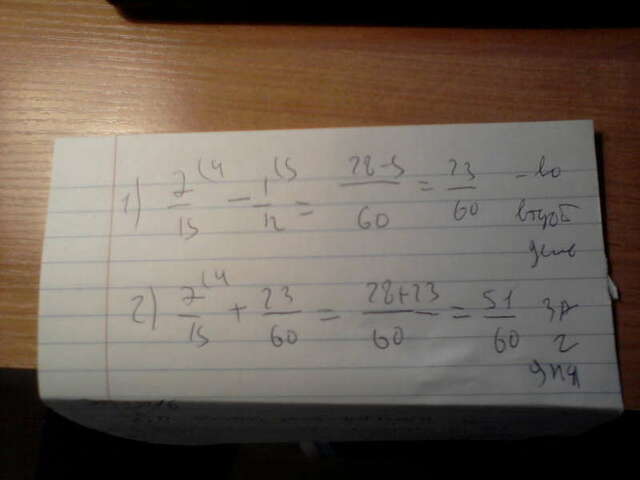 1) 7/15 (4 - 1/12 (5 = 28-5/60 = 23/60 - во
втой
день
2) 7/15 (4 + 23/60 = 28+23/60 = 51/60 за
2
дня